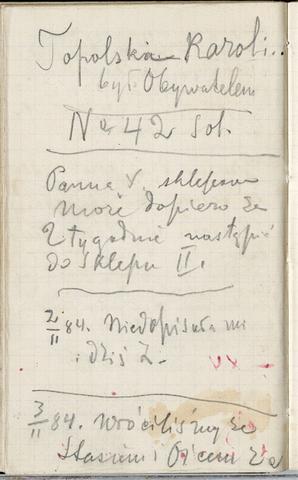 Topolska Karoli..
był Obywatelem
No 42 Sot.
Panna V. sklepowa
może dopiero za
2 tygodnie nastąpić
do sklepu II.
2/II 84. Niedopisała mi
i dziś Z.
3/II 84. Wróciliśmy ze
Stasiem i Ojcem Za